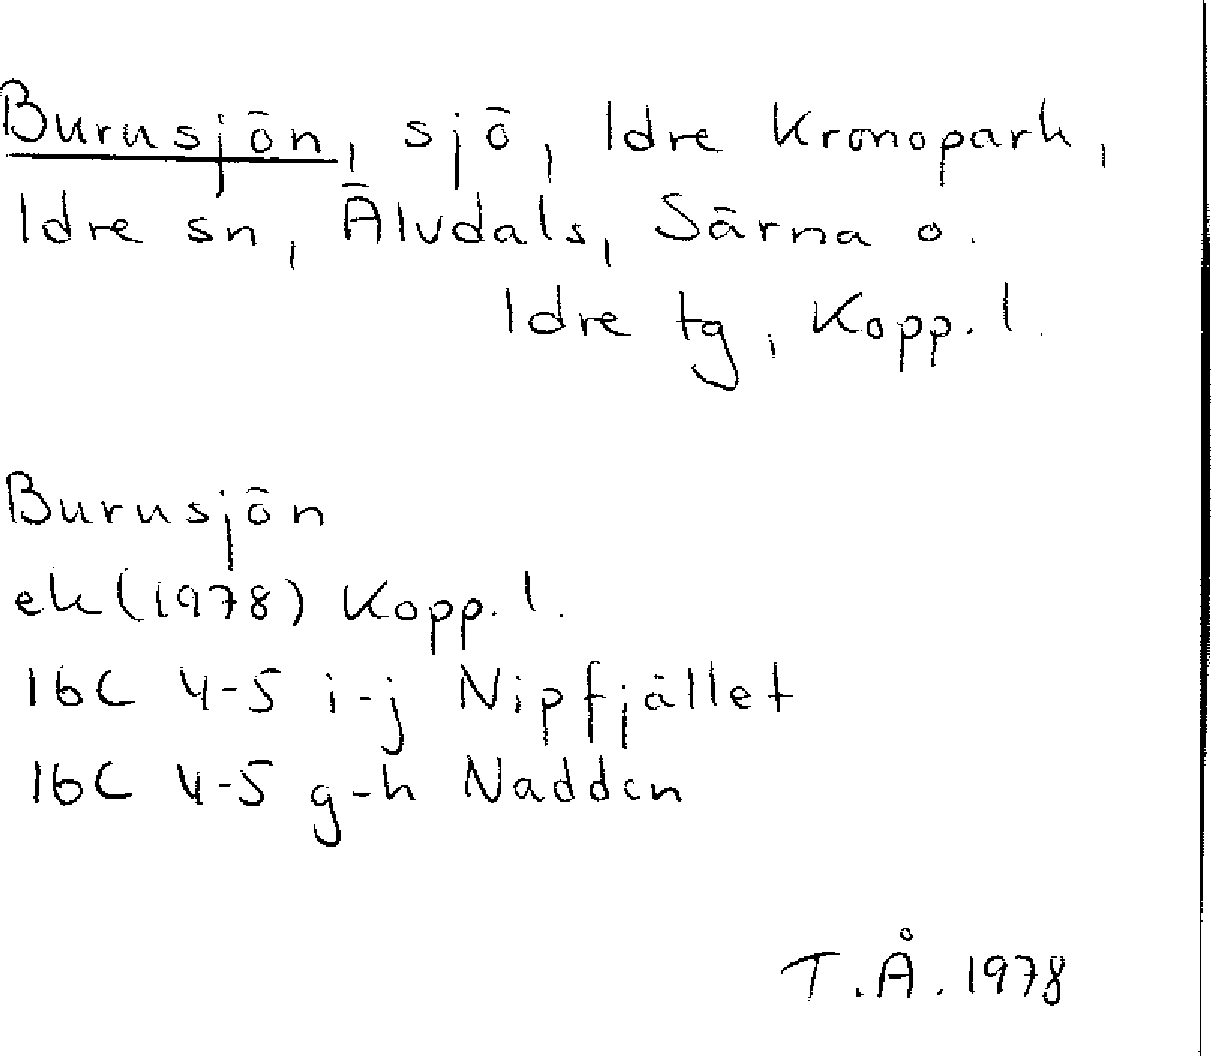 Burusjön, sjö, Idre Kronopark,
Idre sn, Älvdals, Särna o.
Idre tg, Kopp. l.
Burusjön
ek (1978) Kopp. l.
16C 4-5 i-j Nipfjället
16C 4-5 g-h Nadden
T.Å. 1978